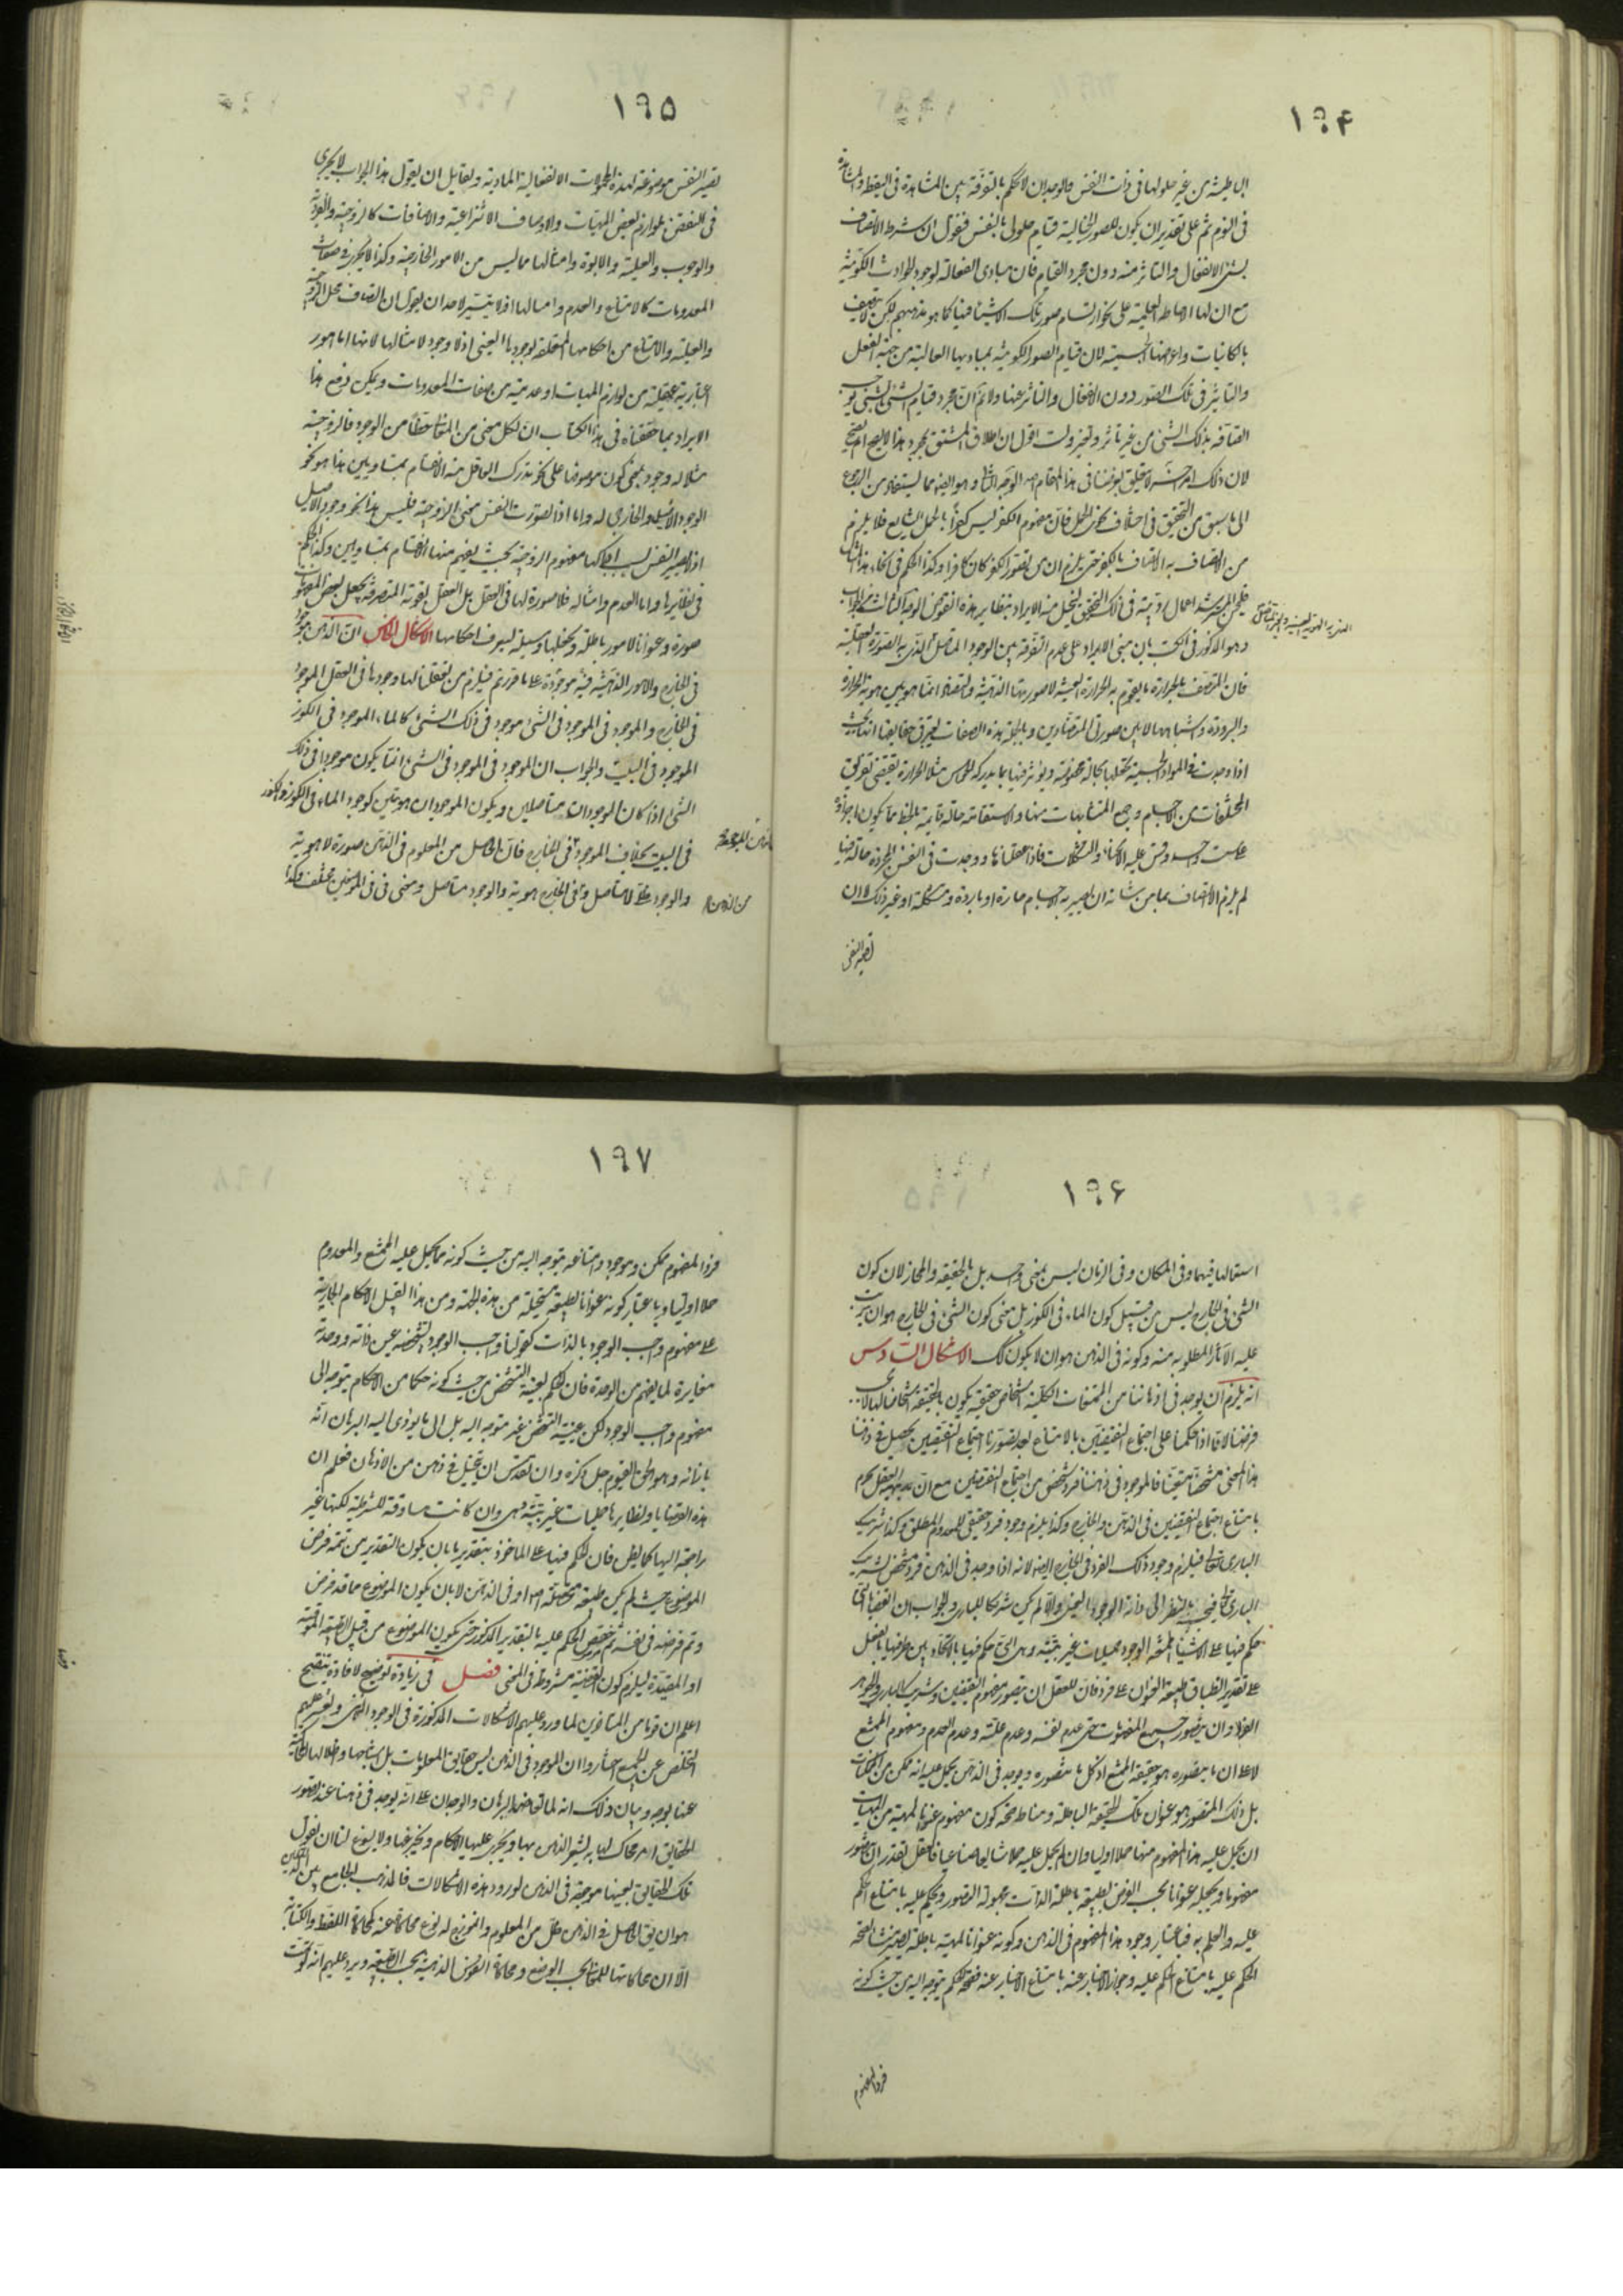 ١٩٤
الباطنية من غير حلولها في ذات النفس والوجدان لا يحكم بالتفرقة بين المشاهدة في اليقظة والمشاهدة
في النوم ثم على تقدير ان يكون للصور الخيالية قيام حلولي بالنفس فنقول ان شرط الاتصاف
بشئ الانفعال والتاثر منه دون مجرد القيام فان مبادي الفعالة لوجود الحوادث الكونية
مع ان لها الاحاطة العلمية على نحو ارتسام صور تلك الاشياء فيها كما هو مذهبهم لكن لا يتصف
بالكائنات واعراضها الجسمية لان قيام الصور الكونية بمباديها العالية من جهة الفعل
والتاثير في تلك الصور دون الانفعال والتاثر عنها ولا نم ان مجرد قيام الشئ بالشئ يوجب
اتصافه بذلك الشئ من غير تاثر وتغير ولست اقول ان اطلاق المشتق بمجرد هذا لا يصح ام يصح
لان ذلك امر آخر لا يتعلق بغرضنا في هذا المقام الوجه الثاني وهو ايضا مما يستفاد من الرجوع
الى ما سبق من التحقيق في اختلاف نحوي الحمل فان مفهوم الكفر ليس كفرا بالحمل الشايع فلا يلزم
من الاتصاف به الاتصاف بالكفر حتى يلزم ان من تصور الكفر كان كافرا وكذا الحكم في انحاء هذا المثال
فليحسن المسترشد اعمال رويته في ذلك التحقيق لينحل منه الايراد بنظاير هذه النقوض الوجه الثالث من الجواب
وهو المذكور في الكتب بان مبنى الايراد على عدم التفرقة بين الوجود المتاصل الذي به الصورة العقلية
الذي به الهوية العينية وغير المتاصل
فان المتصف بالحرارة ما يقوم به الحرارة العينية لا صورتها الذهنية والتضاد انما هو بين هوية الحرارة
والبرودة واشباههما لا بين صورتي المتضادين وبالجملة هذه الصفات يعتبر في حقايقها انها بحيث
اذا وجدت في المواد الجسمية تجعلها بحالة مخصوصة ويؤثر فيها بما يدركه الحواس مثلا الحرارة يقتضي تفريق
المختلفات من الاجسام وجمع المتشابهات منها والاستقامة حالة قايمة بالخط مما يكون اجزاؤه
على سمت واحد وقس عليه الانحناء والتشكلات فاذا عقلناها ووجدت في النفس المجردة حالة فيها
لم يلزم الاتصاف بما من شانه ان يصير به الاجسام حارة او باردة ومتشكلة او غير ذلك الا ان
تصير النفس
١٩٥
تصير النفس موضوعة لهذه المحمولات الانفعالية المادية ولقايل ان يقول هذا الجواب لا يجري
في النقض بلوازم بعض المهيات والاوصاف الانتزاعية والاضافات كالزوجية والفردية
والوجوب والعلية والابوة وامثالها مما ليس من الامور الخارجية وكذا لا يجري في صفات
المعدومات كالامتناع والعدم وامثالها اذ لا يتيسر لاحد ان يقول ان اتصاف محل الزوجية
والعلية والامتناع من احكامها المتعلقة لوجودها العيني اذ لا وجود لامثالها لانها اما امور
اعتبارية عقلية من لوازم المهيات او عدمية من صفات المعدومات ويمكن دفع هذا
الايراد بما حققناه في هذا الكتاب ان لكل معنى من المعاني حظا من الوجود فالزوجية
مثلا له وجود بمعنى كون موصوفها على نحو يدرك العاقل منه الانقسام بمتساويين هذا هو نحو
الوجود الاصيل والخارجي له واما اذا تصورت النفس معنى الزوجية فليس هذا نحو وجود الاصيل
اذ لا يصير النفس بسبب ادراكها مفهوم الزوجية بحيث يفهم منها الانقسام بمتساويين وكذا الحكم
في نظايرها واما العدم وامثاله فلا صورة لها في العقل بل العقل بقوته المتصرفة يجعل بعض المفهومات
صورة وعنوانا لامور باطلة ويجعلها وسيلة لتعرف احكامها الاشكال الخامس ان الذهن موجود
في الخارج والامور الذهنية فيه موجودة على ما قررتم فيلزم من تعقلنا لها وجودها في العقل الموجود
في الخارج والموجود في الموجود في الشئ موجود في ذلك الشئ كالماء الموجود في الكوز
الموجود في البيت والجواب ان الموجود في الموجود في الشئ انما يكون موجودا في ذلك
الشئ اذا كان الوجودان متاصلين ويكون الموجودان هويتين كوجود الماء في الكوز والكوز
في البيت بخلاف الموجود في الخارج فان الحاصل من المعلوم في الذهن صورة لا هوية
في الذهن الموجود
والوجود ظلي لا متاصل وفي الخارج هوية والوجود متاصل ومعنى في في الموضعين مختلف وكذا
من الذهن
١٩٦
استعمالها فيهما وفي المكان وفي الزمان ليس بمعنى واحد بل بالحقيقة والمجاز لان كون
الشئ في الخارج ليس من قبيل كون الماء في الكوز بل معنى كون الشئ في الخارج هو ان يترتب
عليه الآثار المطلوبة منه وكونه في الذهن هو ان لا يكون كك الاشكال السادس
انه يلزم ان يوجد في اذهاننا من الممتنعات الكلية اشخاص حقيقية يكون بالحقيقة اشخاصا لها لا بحسب
فرضنا لانا اذا حكمنا على اجتماع النقيضين بالامتناع بعد تصورنا اجتماع النقيضين يحصل في ذهننا
هذا المعنى متشخصا متعينا فالموجود في ذهننا فرد شخصي من اجتماع النقيضين مع ان بديهة العقل يجزم
بامتناع اجتماع النقيضين في الذهن والخارج وكذا يلزم وجود فرد حقيقي للمعدوم المطلق وكذا لشريك
الباري تعالى فيلزم وجود ذلك الفرد في الخارج ايضا لانه اذا وجد في الذهن فرد مشخص لشريك
الباري تعالى فيجب بالنظر الى ذاته الوجود العيني والا لم يكن شريكا للباري والجواب ان القضايا التي
حكم فيها على الاشياء الممتنعة الوجود حمليات غير بتية وهي التي حكم فيها بالاتحاد بين طرفيها بالفعل
على تقدير انطباق طبيعة العنوان على فرد فان للعقل ان يتصور مفهوم النقيضين وشريك الباري والجوهر
الفرد وان يتصور جميع المفهومات حتى عدم نفسه وعدم علته وعدم العدم ومفهوم الممتنع
لا على ان ما يتصوره هو حقيقة الممتنع اذ كل ما يتصوره ويوجد في الذهن يحمل عليه انه ممكن من الممكنات
بل ذلك المتصور هو عنوان تلك الحقيقة الباطلة ومناط صحة كون مفهوم عنوانا لمهية من المهيات
ان يحمل عليه هذا المفهوم منها حملا اوليا وان لم يحمل عليه حملا شايعا صناعيا فالعقل يقدر ان يتصور
مفهوما ويجعل عنوانا بحسب الفرض لطبيعة باطلة الذات مجهولة التصور ويحكم عليه بامتناع الحكم
عليه والعلم به فباعتبار وجود هذا المفهوم في الذهن وكونه عنوانا لمهية باطلة يصير منشأ لصحة
الحكم عليه بامتناع الحكم عليه وجواز الاخبار عنه بامتناع الاخبار عنه فصحة الحكم يتوجه اليه من حيث كونه
فرد المفهوم
١٩٧
فرد المفهوم ممكن وموجود وامتناعه يتوجه اليه من حيث كونه مما يحمل عليه الممتنع والمعدوم
حملا اوليا وباعتبار كونه عنوانا لطبيعة مستحيلة من هذه الجملة ومن هذا القبيل الاحكام الجارية
على مفهوم واجب الوجود بالذات كقولنا واجب الوجود تشخصه عين ذاته ووحدته
مغايرة لما يفهم من الوحدة فان الحكم بعينية التشخص من حيث كونه حكما من الاحكام يتوجه الى
مفهوم واجب الوجود لكن عينية التشخص غير متوجه اليه بل الى ما يؤدي اليه البرهان انه
بازائه وهو الحي القيوم جل ذكره وان تقدس ان يتمثل في ذهن من الاذهان فعلم ان
هذه القضايا ونظايرها حمليات غير بتية وهي وان كانت مساوقة للشرطية لكنها غير
راجعة اليها كما يظن فان الحكم فيها على الماخوذ بتقدير ما بان يكون التقدير من تتمة فرض
الموضوع حيث لم يكن طبيعة متحصلة اصلا او في الذهن لا بان يكون الموضوع مما قد فرض
وتم فرضه في نفسه ثم خصص الحكم عليه بالتقدير المذكور حتى يكون الموضوع من قبيل الطبيعة الموقتة
او المقيدة ليلزم كون القضية مشروطة في المعنى فصل في زيادة توضيح لافادة تنقيح
اعلم ان قوما من المتاخرين لما ورد عليهم الاشكالات المذكورة في الوجود الذهني وتعسر عليهم
التخلص عن الجميع اختاروا ان الموجود في الذهن ليس حقايق المعلومات بل اشباحها واظلالها المحاكية
عنها بوجه وبيان ذلك انه لما تعاضد البرهان والوجدان على انه يوجد في ذهننا عند تصور
الحقايق امر محاك لها به يشعر الذهن بها ويجري عليها الاحكام ويخبر عنها ولا يسوغ لنا ان نقول
تلك الحقايق بعينها موجودة في الذهن لورود هذه الاشكالات فالمذهب الجامع بين الدليلين
هو ان يق الحاصل في الذهن ظل من المعلوم وانموذج له نوع محاكاة عنه كمحاكاة اللفظ والكتابة
الا ان محاكاتها للمعاني بحسب الوضع ومحاكاة النقوش الذهنية بحسب الطبيعة ويرد عليهم انه لو تمت